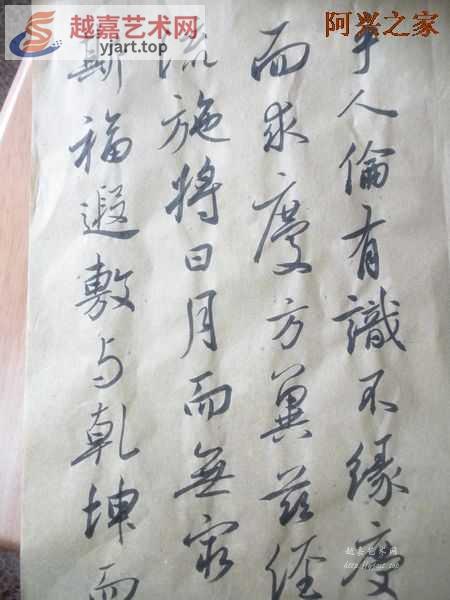 越嘉艺术网
yjart.top
阿兴之家
乎人倫有識不緣慶
而求慶方冀茲經
流施將日月而無窮
斯福遐敷与乾坤而
越嘉艺术网
http://yjart.top